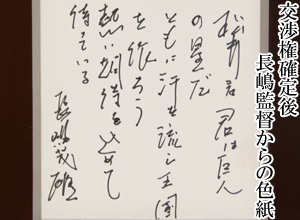 交渉権確定後
長嶋監督からの色紙
松井君 君は巨人
の星だ
ともに汗を流し王国
を作ろう
熱い期待を込めて
待っている
長嶋茂雄